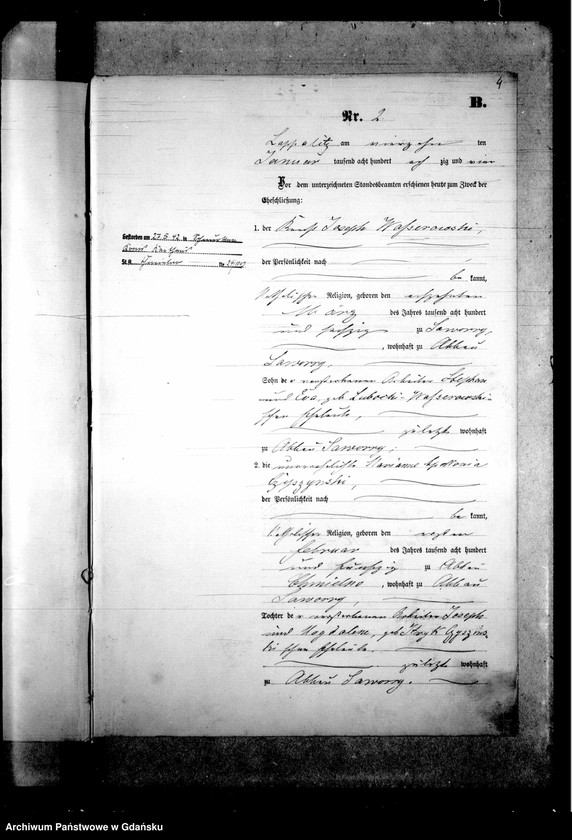 4
B.
Nr. 2
Lappalitz am vierzehn ten
Januar tausend acht hundert acht zig und vier
Vor dem unterzeichneten Standesbeamten erschienen heute zum Zweck der
Eheschließung:
1. der Knecht Joseph Wasserowski,
der Persönlichkeit nach
be kannt,
katholischer Religion, geboren den
März des Jahres tausend acht hundert
und sechzig zu Saworry,
, wohnhaft zu Abbau
Saworry,
Sohn des verstorbenen Arbeiter Stephan
und Eva, geb. Wasserowski-
schen Eheleute,
zuletzt wohnhaft
zu Abbau Saworry,
2. die unverehelichte Marianna Apolonia
Gyszynski,
der Persönlichkeit nach
be kannt,
katholischer Religion, geboren den ersten
Februar des Jahres tausend acht hundert
und zu Abbau
Chmielno, wohnhaft zu Abbau
Saworry,
Tochter des verstorbenen Arbeiter Joseph
und Magdalena, geb.
schen Eheleute.
zuletzt wohnhaft
zu Abbau Saworry.
Gestorben am in
Kreis Karthaus
St. A. Nr.
Archiwum Państwowe w Gdańsku